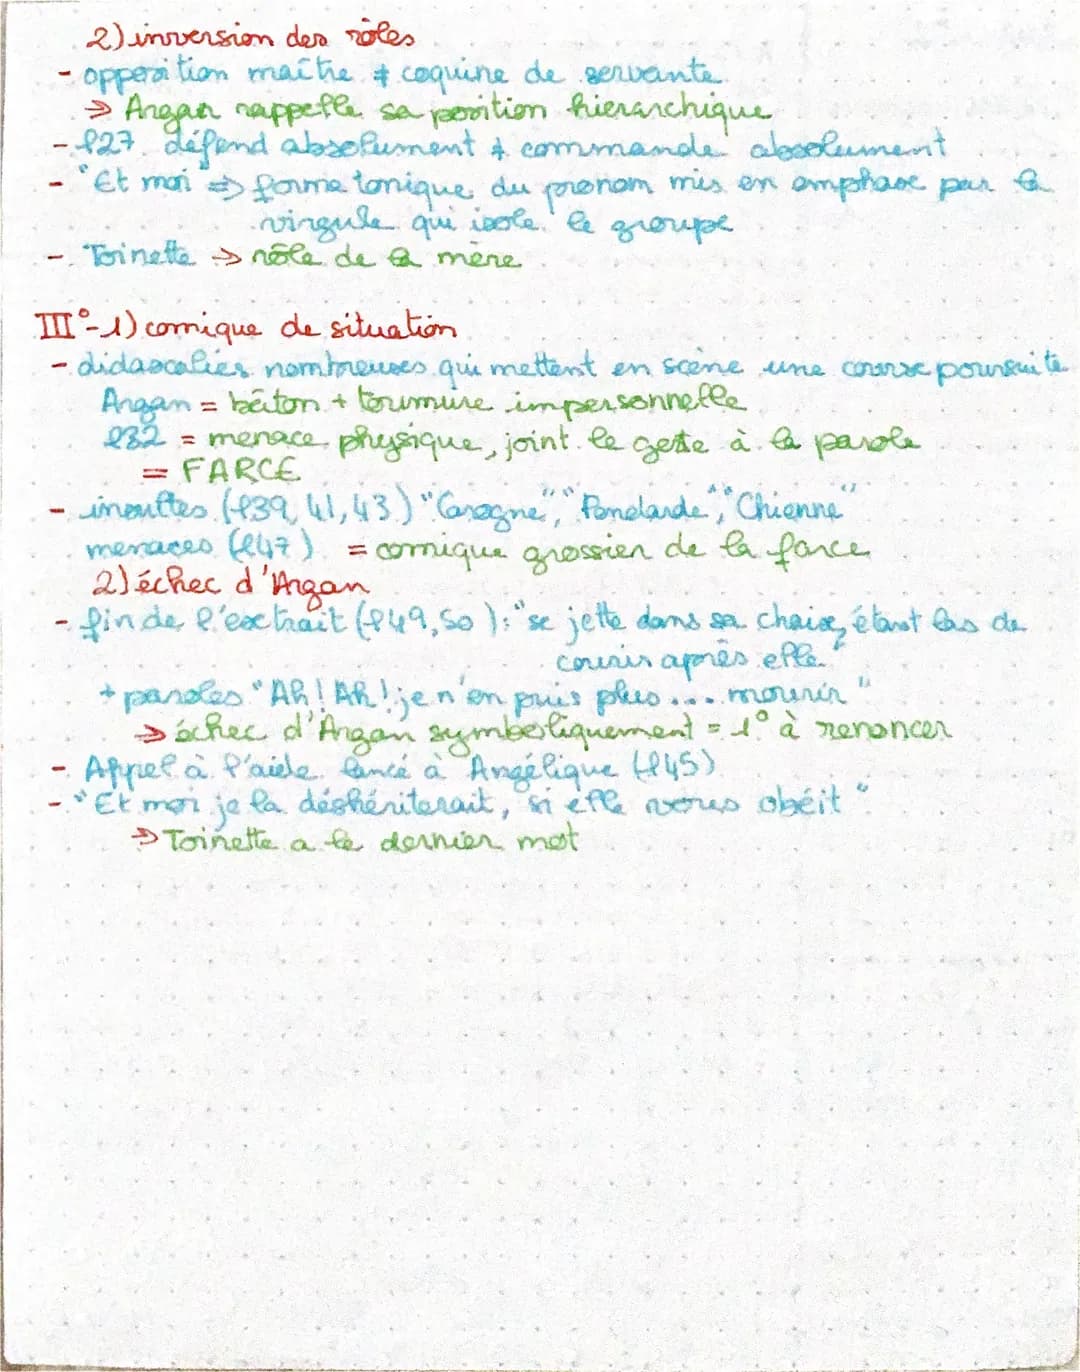 2) inversion des rôles
- opposition maître ≠ coquine de servante
→ Argan rappelle sa position hierarchique
- l27 défend absolument ≠ commande absolument
- "Et moi" ⇒ forme tonique du pronom mis en emphase par la
virgule qui isole le groupe
- Toinette → rôle de la mère
III°-1) comique de situation
- didascalies nombreuses qui mettent en scène une course poursuite
Argan = bâton + tournure impersonnelle
l32 = menace physique, joint le geste à la parole
= FARCE
- insultes (l39, 41, 43) "Carogne", "Pendarde", "Chienne"
menaces (l47) = comique grossier de la farce
2) échec d'Argan
- fin de l'extrait (l49, 50) : "se jette dans sa chaise, étant las de
courir après elle"
+ paroles "Ah ! Ah ! je n'en puis plus ... mourir"
→ échec d'Argan symboliquement = 1° à renoncer
- Appel à l'aide lancé à Angélique (l45)
- "Et moi je la déshériterait, si elle vous obéit"
⇒ Toinette a le dernier mot